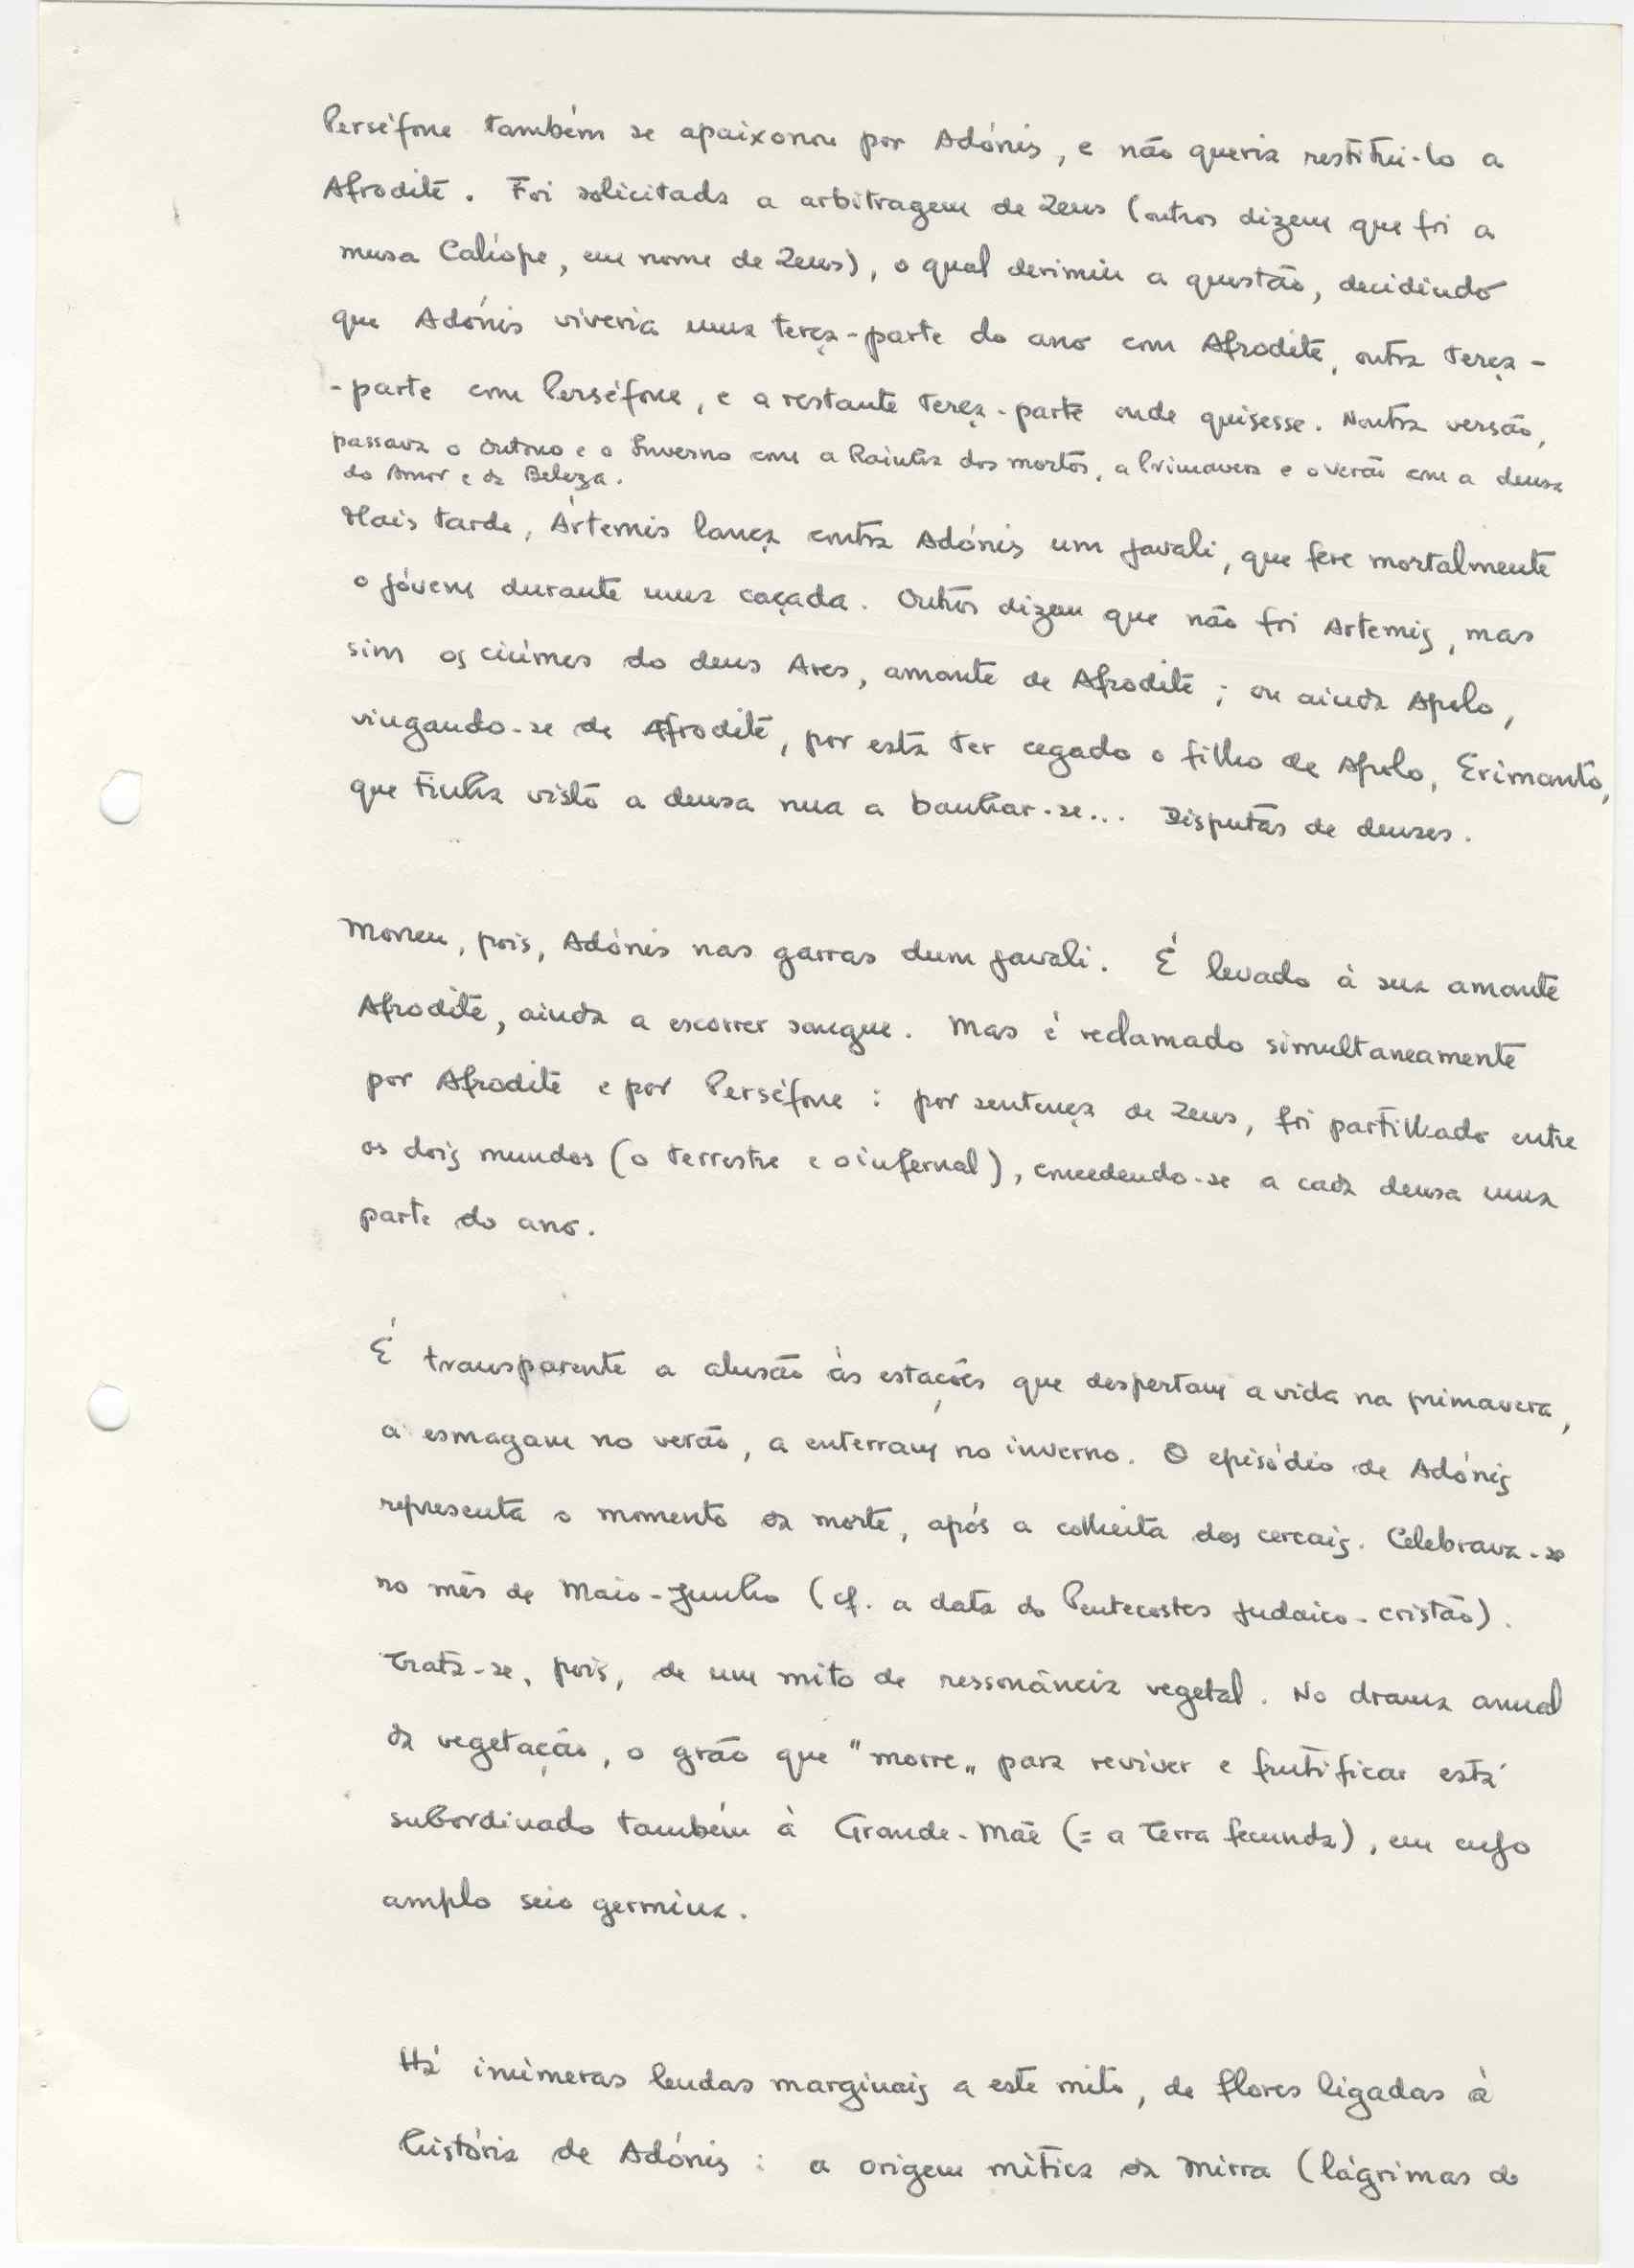 Perséfone também se apaixonou por Adónis, e não queria restituí-lo a
Afrodite. Foi solicitada a arbitragem de Zeus (outros dizem que foi a
musa Calíope, em nome de Zeus), o qual derimiu a questão, decidindo
que Adónis viveria uma terça-parte do ano com Afrodite, outra terça-
-parte com Perséfone, e a restante terça-parte onde quisesse. Noutra versão,
passava o Outono e o Inverno com a Rainha dos mortos, a Primavera e o verão com a deusa
do Amor e da Beleza.
Mais tarde, Ártemis lança contra Adónis um javali, que fere mortalmente
o jóvem durante uma caçada. Outros dizem que não foi Artemis, mas
sim os ciúmes do deus Ares, amante de Afrodite; ou ainda Apolo,
vingando-se de Afrodite, por esta ter cegado o filho de Apolo, Erimanto,
que tinha visto a deusa nua a banhar-se... Disputas de deuses.
Morreu, pois, Adónis nas garras dum javali. É levado à sua amante
Afrodite, ainda a escorrer sangue. Mas é reclamado simultaneamente
por Afrodite e por Perséfone: por sentença de Zeus, foi partilhado entre
os dois mundos (o terrestre e o infernal), concedendo-se a cada deusa uma
parte do ano.
É transparente a alusão às estações que despertam a vida na primavera,
a esmagam no verão, a enterram no inverno. O episódio de Adónis
representa o momento da morte, após a colheita dos cereais. Celebrava-se
no mês de Maio-Junho (cf. a data do Pentecostes judaico-cristão).
Trata-se, pois, de um mito de ressonância vegetal. No drama anual
da vegetação, o grão que "morre" para reviver e frutificar está
subordinado também à Grande-Mãe (= a Terra fecunda), em cujo
amplo seio germina.
Há inúmeras lendas marginais a este mito, de flores ligadas à
história de Adónis: a origem mítica da Mirra (lágrimas do